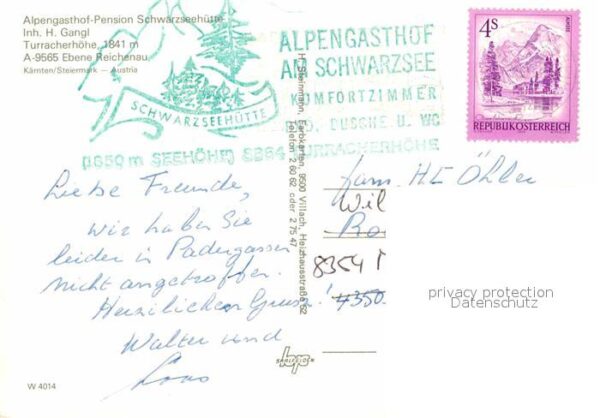 Alpengasthof-Pension Schwarzseehütte
Inh. H. Gangl
Turracherhöhe, 1841 m
A-9565 Ebene Reichenau
Kärnten/Steiermark — Austria
SCHWARZSEEHÜTTE
ALPENGASTHOF
AM SCHWARZSEE
KOMFORTZIMMER
DUSCHE U. WC
(1850 m SEEHÖHE) 8864 TURRACHERHÖHE
4S
REPUBLIK ÖSTERREICH
Liebe Freunde,
wir haben Sie
leider in Patergassen
nicht angetroffen.
Herzlichen Gruss!
Walter und
H. Steinmann, Farbkarten, 9500 Villach, Heizhausstraße 52
Telefon 2 60 62 oder 2 75 47
Fam. HE Öhler
Wil
Ro
8354
4350
privacy protection
Datenschutz
W 4014